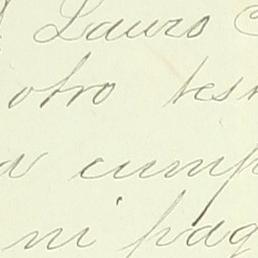 Lauro
otro tes
a cump
ni pag